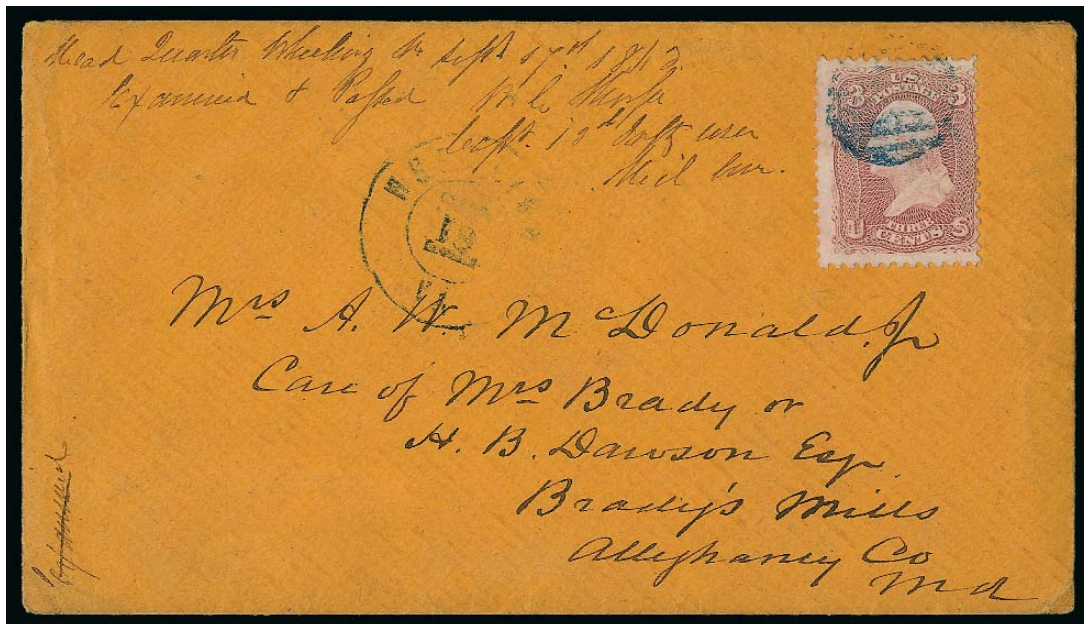 Head Quarters Wheeling Va Sept 17th 1862
Examined & Passed
Capt. 12th Infty USA
Mil Com.
U S
POSTAGE
3 3
U S
THREE
CENTS
18
Mrs A. W. McDonald. Jr
Care of Mrs Brady or
H. B. Dawson Esq
Brady's Mills
Alleghaney Co
Md
Examined